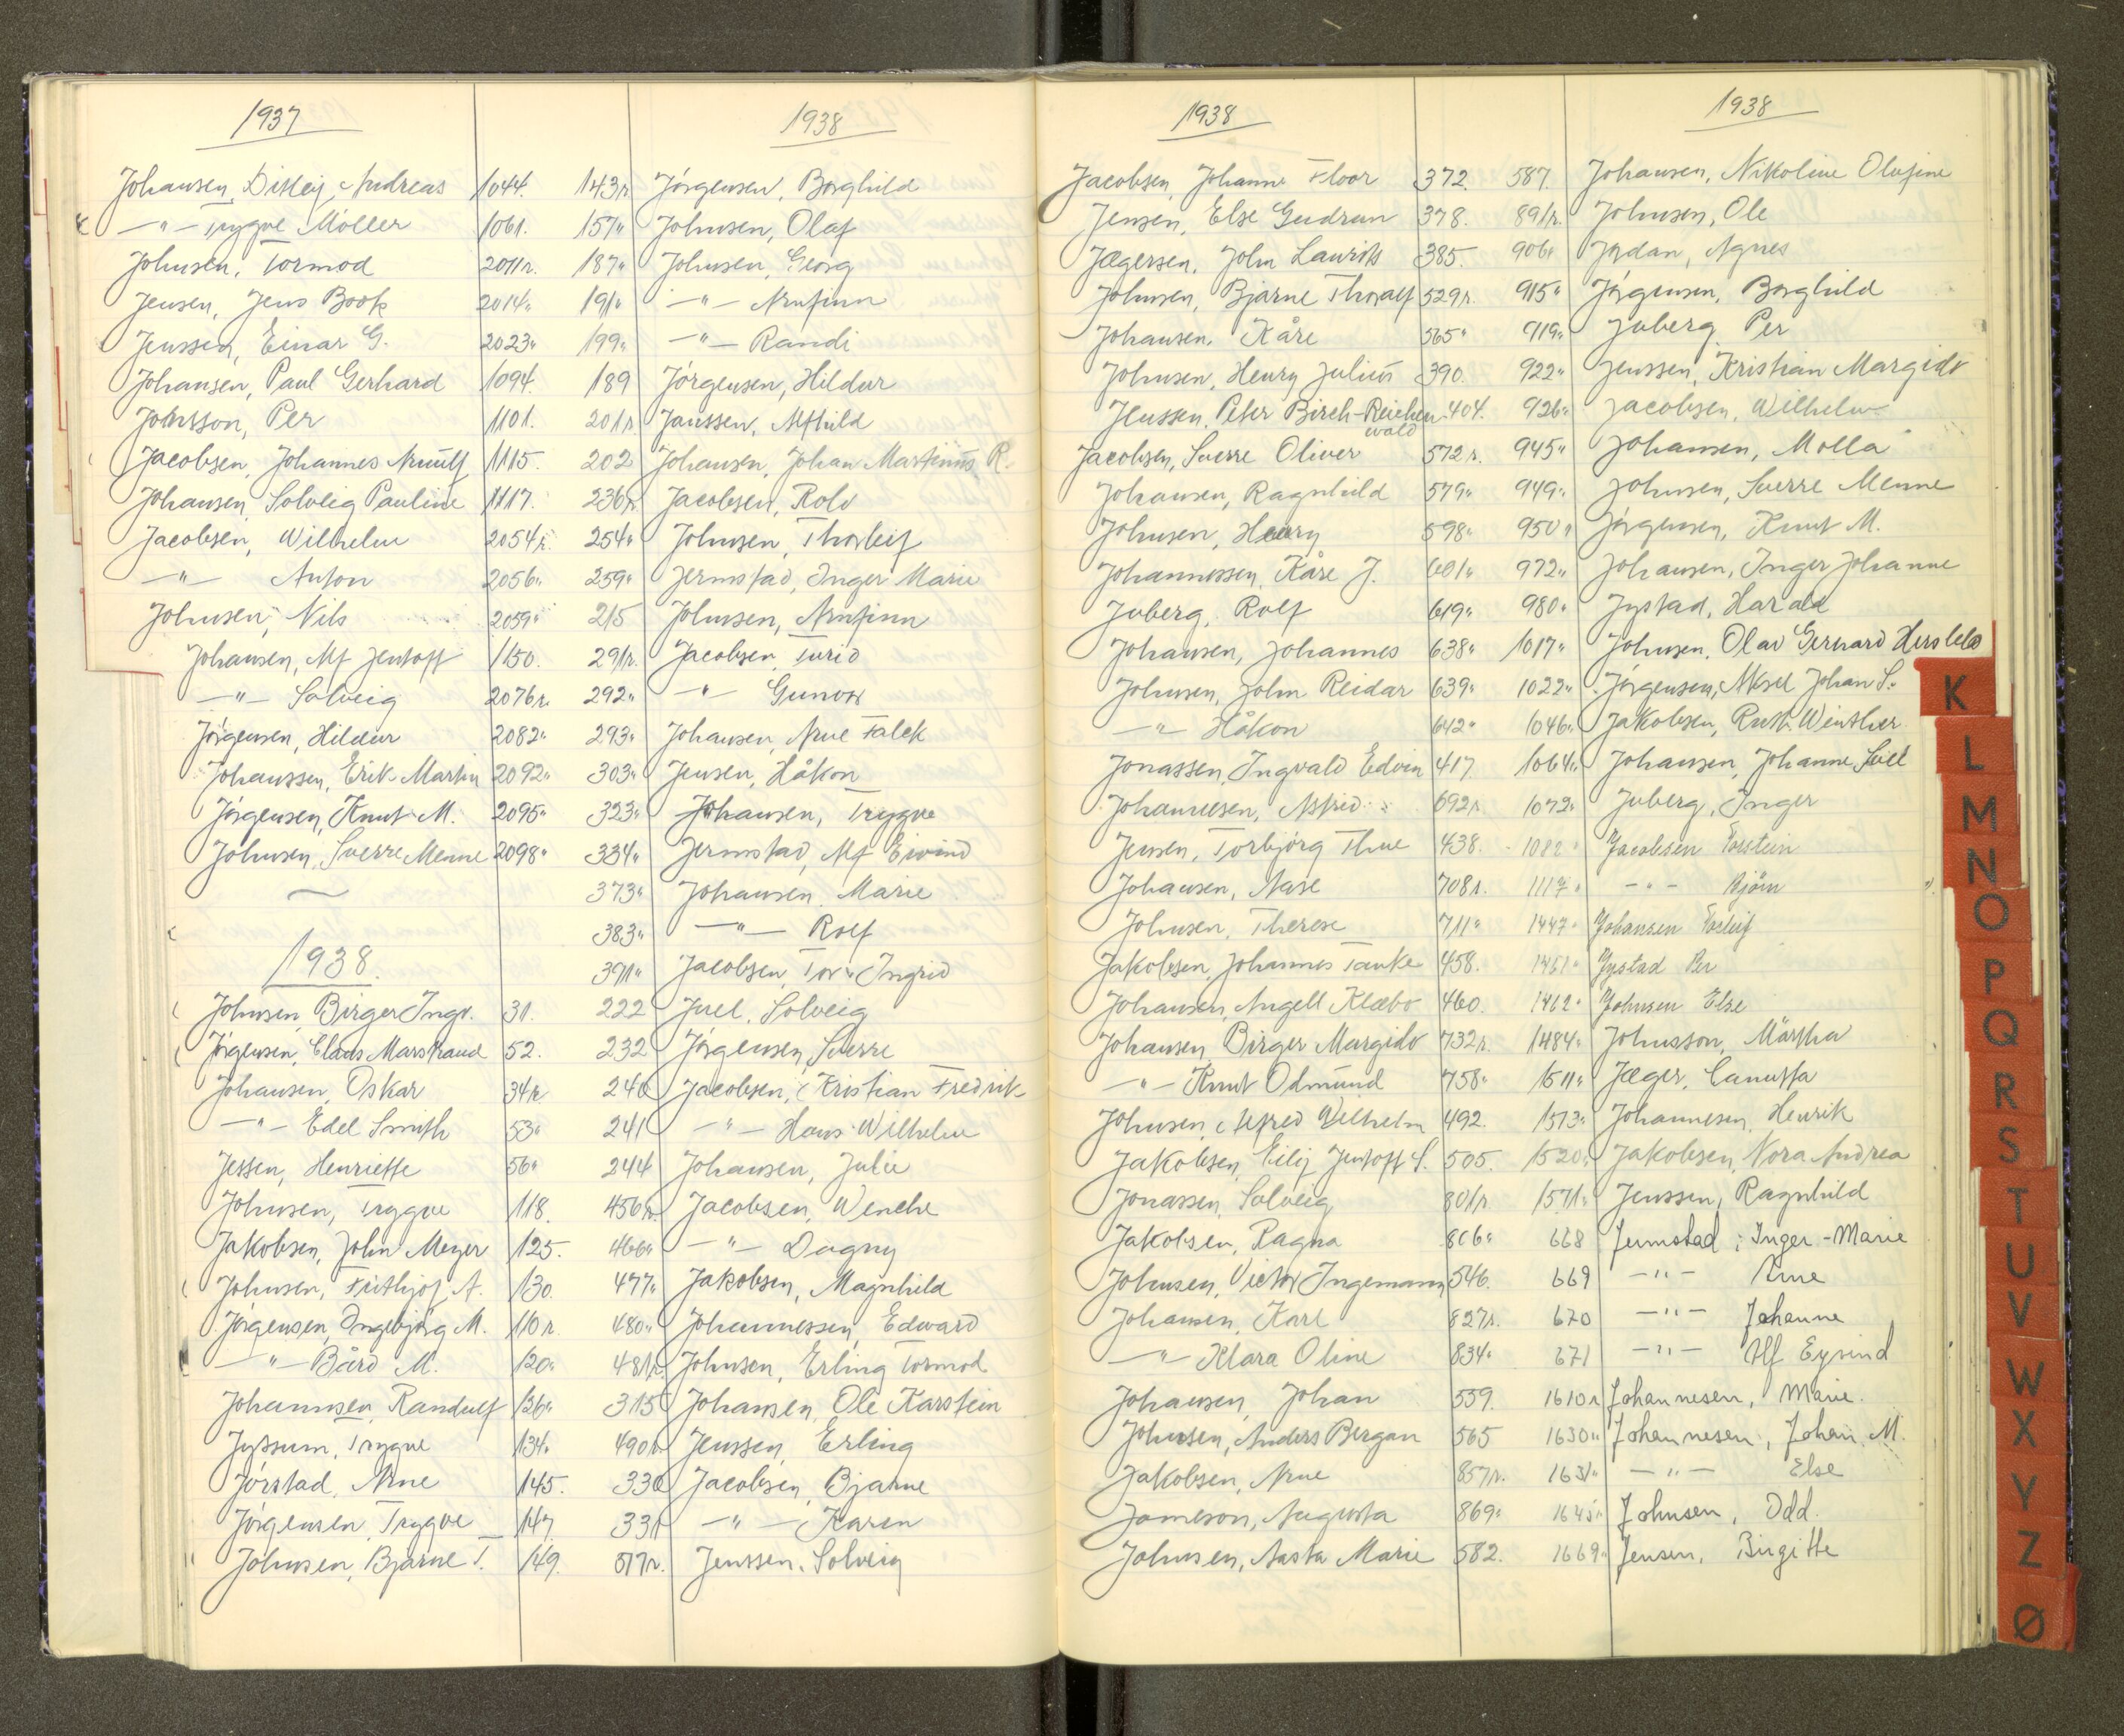 1937
Johansen, Disley Andreas 1044.
-"- Trygve Möller 1061.
Johnsen, Tormod 2011r.
Jensen, Jens Book 2014"
Jenssen, Einar G. 2023"
Johansen, Paul Gerhard 1094.
Johnsson, Per 1101.
Jacobsen, Johannes Arnulf 1115.
Johansen, Solveig Pauline 1117.
Jacobsen, Wilhelm 2054r.
-"- Anton 2056"
Johnsen, Nils 2059"
Johansen, Alf Jentoft 1150.
-"- Solveig 2076r.
Jörgensen, Hildur 2082"
Johanssen, Erik Martin 2092"
Jörgensen, Knut M. 2095"
Johnsen, Sverre Menne 2098"
1938.
Johnsen, Birger Ingv. 31.
Jörgensen, Claus Marstrand 52.
Johansen, Oskar 34r
-"- Edel Smith 53"
Jessen, Henriette 56"
Johnsen, Trygve 118.
Jakobsen, John Meyer 125.
Johnsen, Frithjof A. 130.
Jörgensen, Ingebjörg M. 110r.
-"- Bård M. 120"
Johannsen, Randulf 126"
Jyssum, Trygve 134"
Jörstad, Arne 145.
Jörgensen, Trygve 147
Johnsen, Bjarne T. 149.
1938
143r. Jörgensen, Borghild
157" Johnsen, Olaf
187" Johnsen, Georg
191" -"- Arnfinn
199" -"- Randi
189 Jörgensen, Hildur
201r Janssen, Alfhild
202 Johansen, Johan Martinus R.
236r. Jacobsen, Rolv
254" Johnsen, Thorleif
259" Jermstad, Inger Marie
215 Johnsen, Arnfinn
291r. Jacobsen, Turid
292" -"- Gunvor
293" Johansen, Arne Falck
303" Jensen, Håkon
323" Johansen, Trygve
334" Jermstad, Alf Eivind
373" Johansen, Marie
383" -"- Rolf
391" Jacobsen, Tor & Ingrid
222 Juel, Solveig
232 Jörgensen, Sverre
240 Jacobsen, Kristian Fredrik
241 -"- Hans Wilhelm
244 Johansen, Julie
456r. Jacobsen, Wenche
466" -"- Dagny
477" Jakobsen, Magnhild
480" Johannessen, Edward
481r. Johnsen, Erling Tormod
315 Johansen, Ole Karstein
490r Jenssen, Erling
330 Jacobsen, Bjarne
331 -"- Karen
517r. Jenssen, Solveig
1938
Jacobsen, Johanne Floor 372.
Jensen, Else Gudrun 378.
Jægersen, John Laurits 385.
Johnsen, Bjarne Thoralf 529r.
Johansen, Kåre 565"
Johnsen, Henry Julius 390.
Jenssen, Peter Birch-Reichenwald 404.
Jacobsen, Sverre Oliver 572r.
Johansen, Ragnhild 579"
Johnsen, Henry 598"
Johannessen, Kåre J. 601"
Juberg, Rolf 619"
Johansen, Johannes 638"
Johnsen, John Reidar 639"
-"- Håkon 642"
Jonassen, Ingvald Edvin 417.
Johannesen, Astrid 692r.
Jensen, Torbjörg Thue 438.
Johansen, Aase 708r.
Johnsen, Therese 711"
Jakobsen, Johannes Tanke 458.
Johansen, Angell Klæbo 460.
Johansen, Birger Margido 732r.
-"- Knut Odmund 758"
Johnsen, Alfred Wilhelm 492.
Jakobsen, Eilif Jentoft S. 505.
Jonassen, Solveig 801r
Jakobsen, Ragna 806"
Johnsen, Victor Ingemann 546.
Johansen, Karl 827r.
-"- Klara Oline 834"
Johansen, Johan 559.
Johnsen, Anders Bergan 565
Jakobsen, Arne 857r.
Jameson, Augusta 869"
Johnsen, Aasta Marie 582.
1938
587. Johansen, Nikoline Olufine
891r. Johnsen, Ole
906" Jordan, Agnes
915" Jörgensen, Borghild
919" Juberg, Per
922" Jenssen, Kristian Margido
926" Jacobsen, Wilhelm
945" Johansen, Molla
949" Johnsen, Sverre Menne
950" Jörgensen, Knut M.
972" Johansen, Inger Johanne
980" Jystad, Harald
1017" Johnsen, Olav Gerhard Hersleb
1022" Jörgensen, Aksel Johan S.
1046" Jakobsen, Ruth Winther
1064" Johansen, Johanne
1072" Juberg, Inger
1082" Jacobsen Torstein
1117" -"- Björn
1447" Johansen Torleif
1451" Jystad Per
1462" Johnsen Else
1484" Johnsson, Märtha
1511" Jæger, Canutta
1513" Johannesen, Henrik
1520" Jakobsen, Nora Andrea
1571" Jenssen, Ragnhild
668 Jermstad, Inger-Marie
669 -"- Arne
670 -"- Johanne
671 -"- Alf Eyvind
1610r Johannesen, Marie.
1630" Johannesen, Johan M.
1631" -"- Else
1645" Johnsen, Odd.
1669" Jensen, Birgitte
K
L
M
N
O
P
Q
R
S
T
U
V
W
X
Y
Z
Ø